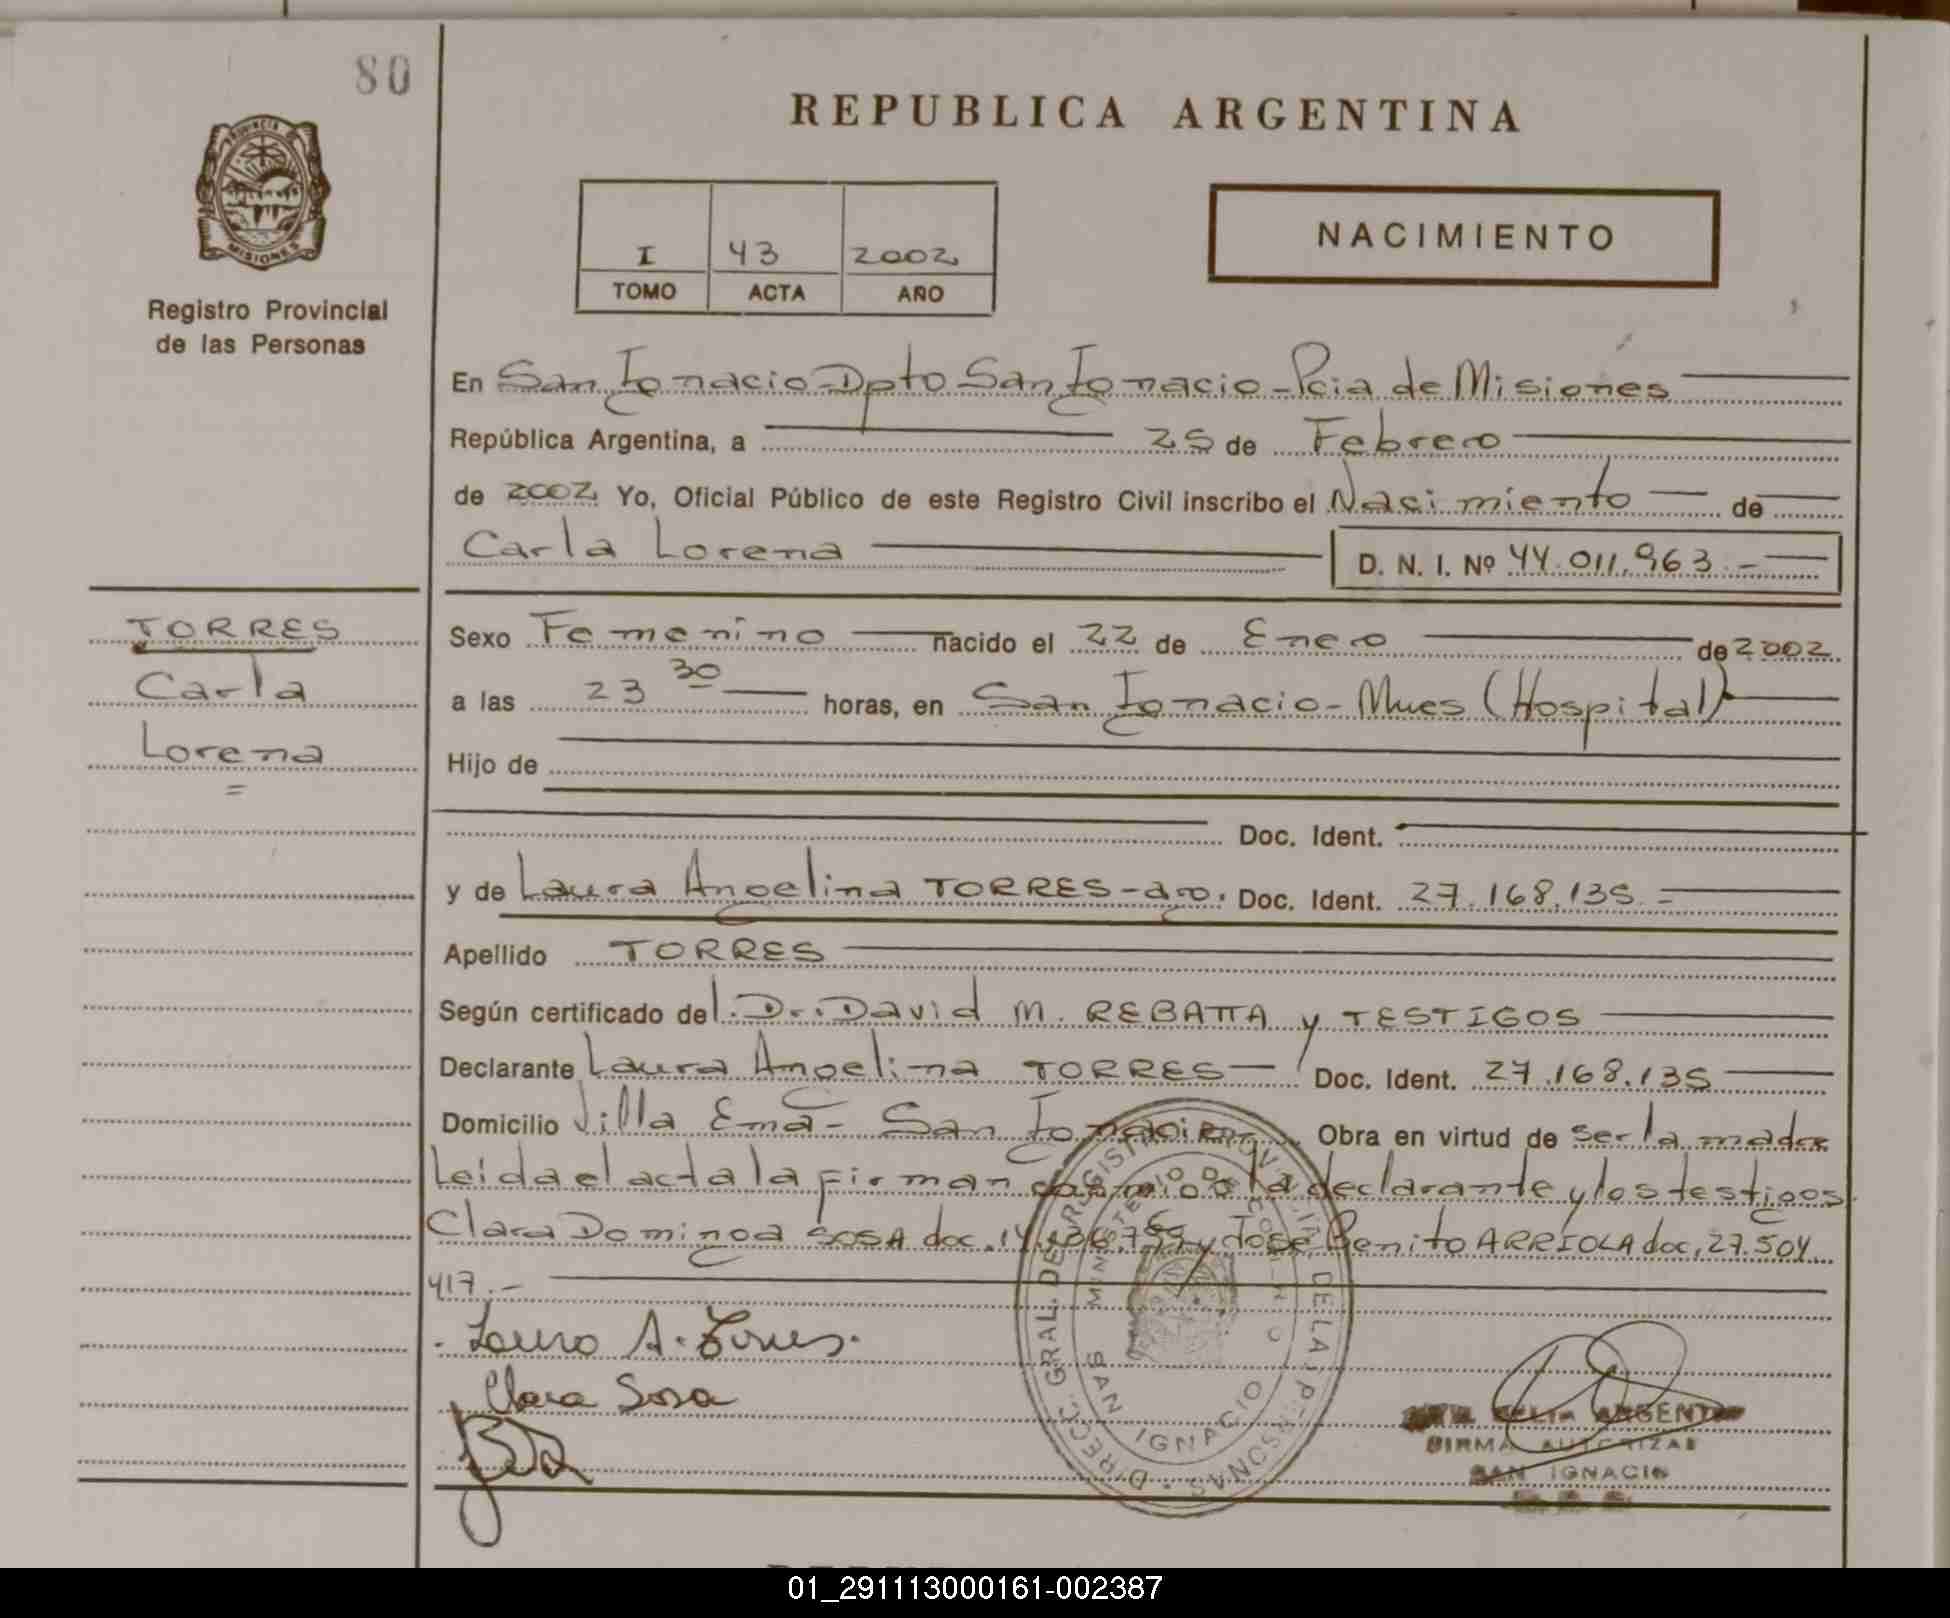 80
REPUBLICA ARGENTINA
PROVINCIA DE
MISIONES
Registro Provincial
de las Personas
I 43 2002
TOMO ACTA AÑO
NACIMIENTO
En San Ignacio-Dpto San Ignacio-Pcia de Misiones
República Argentina, a 25 de Febrero
de 2002 Yo, Oficial Público de este Registro Civil inscribo el Nacimiento de
Carla Lorena D. N. I. Nº 44.011.963.-
TORRES
Carla
Lorena
=
Sexo Femenino nacido el 22 de Enero de 2002
a las 23 30 horas, en San Ignacio-Mnes (Hospital)
Hijo de
Doc. Ident.
y de Laura Angelina TORRES-arg. Doc. Ident. 27.168.135.-
Apellido TORRES
Según certificado del. Dr. David M. REBATTA y TESTIGOS
Declarante Laura Angelina TORRES- Doc. Ident. 27.168.135
Domicilio Villa Ema- San Ignacio Obra en virtud de ser la madre
Leida el acta la firman conmigo la declarante y los testigos
Clara Dominga SOSA doc. y José Benito ARRIOLA doc. 27.504.
417.-
Laura A. Torres.
Clara Sosa
DIRECC. GRAL. DEL REGISTRO PROVINCIAL DE LAS PERSONAS
MINISTERIO DE GOBIERNO
SAN IGNACIO
ARGENT
FIRMA AUTORIZAD
SAN IGNACIO
01_291113000161-002387